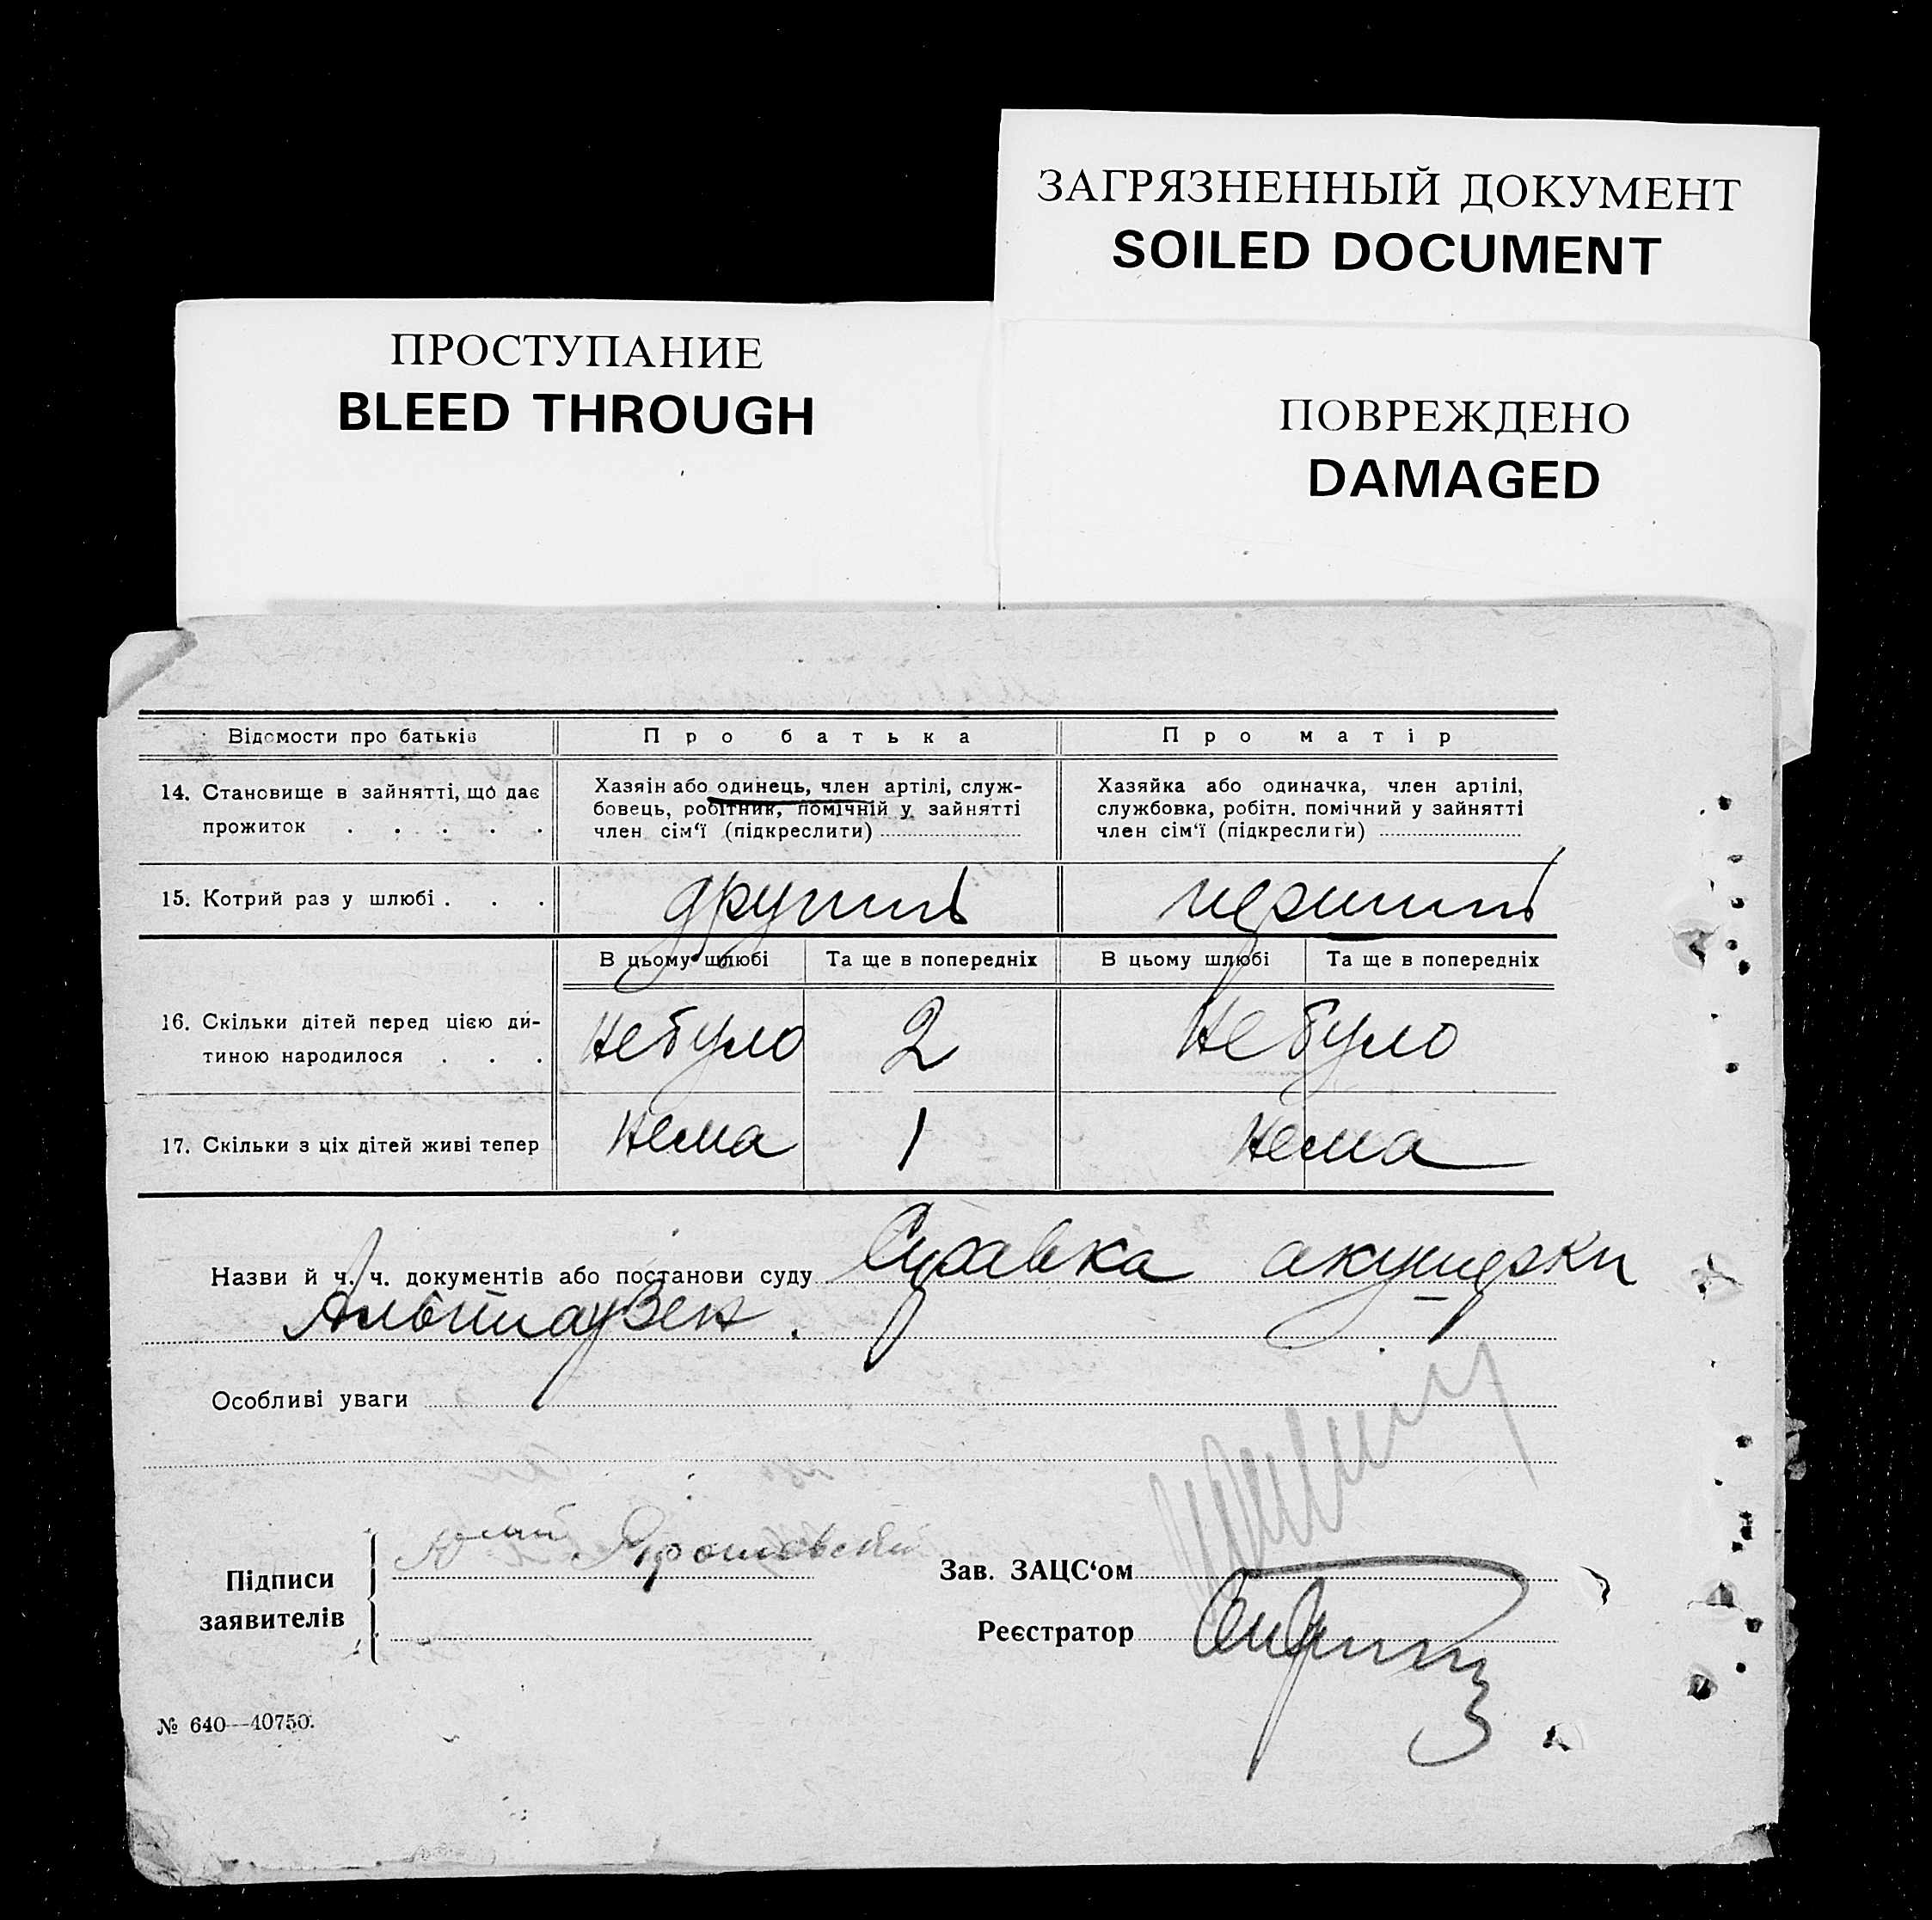 ЗАГРЯЗНЕННЫЙ ДОКУМЕНТ
SOILED DOCUMENT
ПРОСТУПАНИЕ
BLEED THROUGH
ПОВРЕЖДЕНО
DAMAGED
Відомости про батьків Про батька Про матір
14. Становище в зайнятті, що дає
прожиток . . . . .
Хазяїн або одинець, член артілі, служ-
бовець, робітник, помічний у зайнятті
член сім‘ї (підкреслити)
Хазяйка або одиначка, член артілі,
службовка, робітн. помічний у зайнятті
член сім‘ї (підкреслити)
15. Котрий раз у шлюбі . . . другий перший
В цьому шлюбі Та ще в попередніх В цьому шлюбі Та ще в попередніх
16. Скільки дітей перед цією ди-
тиною народилося . . .
не було 2 не було
17. Скільки з ціх дітей живі тепер нема 1 нема
Назви й ч. ч. документів або постанови суду Справка акушерки
Альтгаузен.
Особливі уваги
Підписи
заявителів
Ярошовский
Зав. ЗАЦС‘ом
Реєстратор
№ 640—40750.